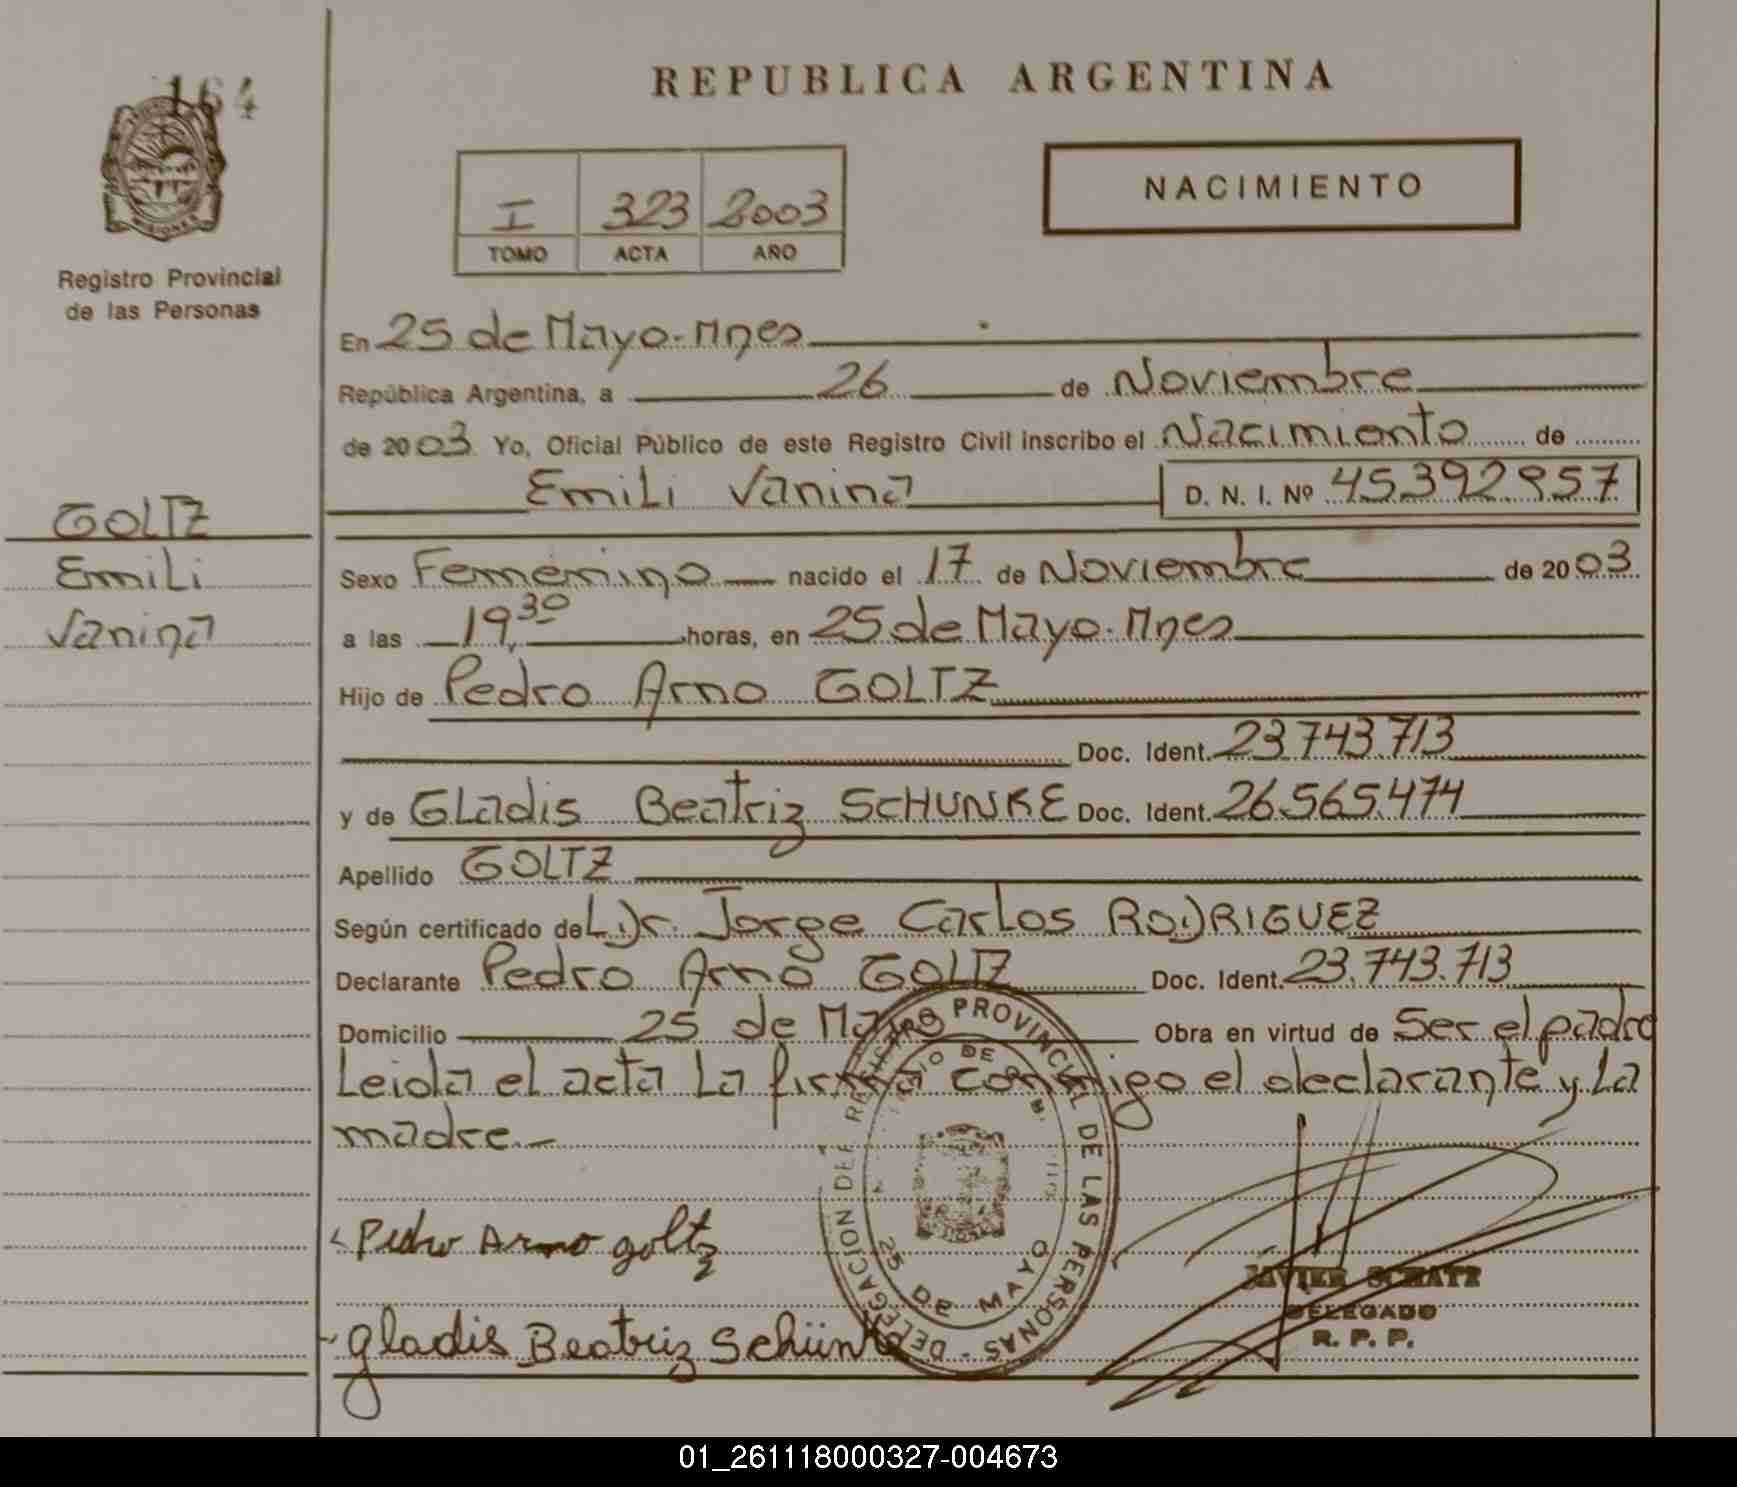 164
REPUBLICA ARGENTINA
NACIMIENTO
I 323 2003
TOMO ACTA AÑO
Registro Provincial
de las Personas
En 25 de Mayo-Mnes
República Argentina, a 26 de Noviembre
de 2003 Yo, Oficial Público de este Registro Civil inscribo el Nacimiento de
Emili Vanina D. N. I. Nº 45.392.957
GOLTZ
Emili
Vanina
Sexo Femenino nacido el 17 de Noviembre de 2003
a las 19,30 horas, en 25 de Mayo-Mnes
Hijo de Pedro Arno GOLTZ
Doc. Ident. 23.743.713
y de Gladis Beatriz SCHUNKE Doc. Ident. 26.565.474
Apellido GOLTZ
Según certificado del Dr. Jorge Carlos RODRIGUEZ
Declarante Pedro Arno GOLTZ Doc. Ident. 23.743.713
Domicilio 25 de Mayo Obra en virtud de Ser el padre
Leida el acta La firma conmigo el declarante y La
madre.-
Pedro Arno goltz
gladis Beatriz Schünke
DELEGACION DEL REGISTRO PROVINCIAL DE LAS PERSONAS
25 DE MAYO
JAVIER SCHATZ
DELEGADO
R. P. P.
01_261118000327-004673